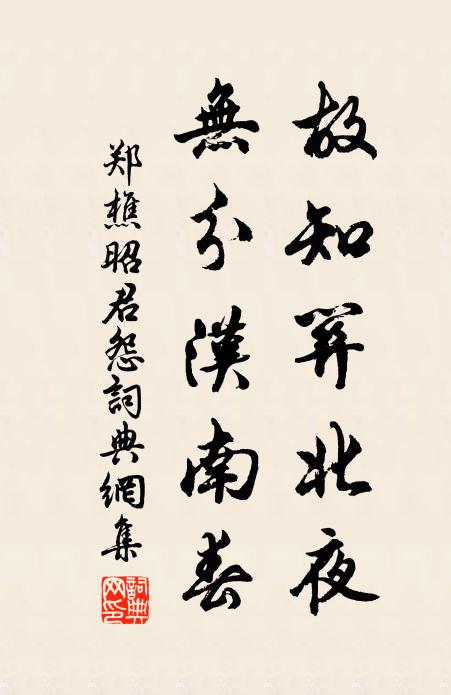 故知北夜
無分漢南春
郑樵昭君怨詞典網集
詞典
网印